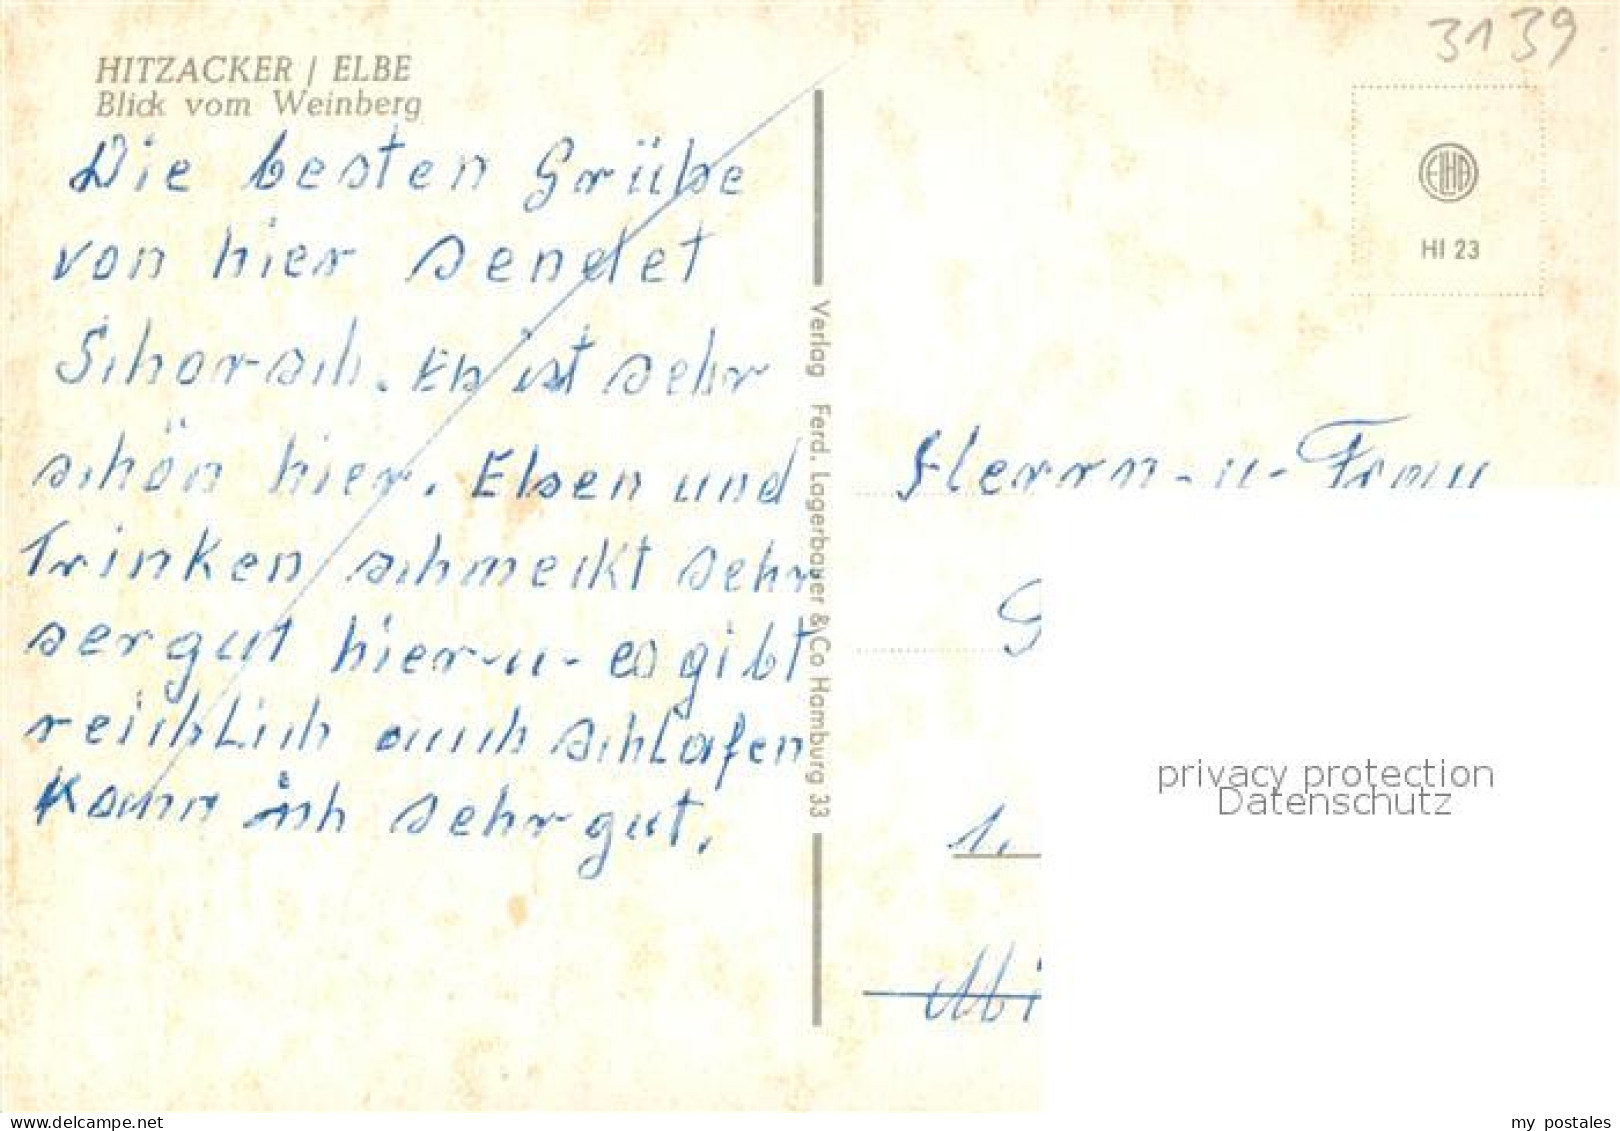 3139
HITZACKER / ELBE
Blick vom Weinberg
Die besten Grüße
von hier sendet
Schorsch. Es ist sehr
schön hier. Essen und
Trinken schmeckt sehr
ser gut hier-u- es gibt
reichlich auch schlafen
Kann ich sehr gut.
Verlag Ferd. Lagerbauer & Co Hamburg 33
ELHA
HI 23
Herrn-u-Frau
G
1.
Mi
privacy protection
Datenschutz
my postales